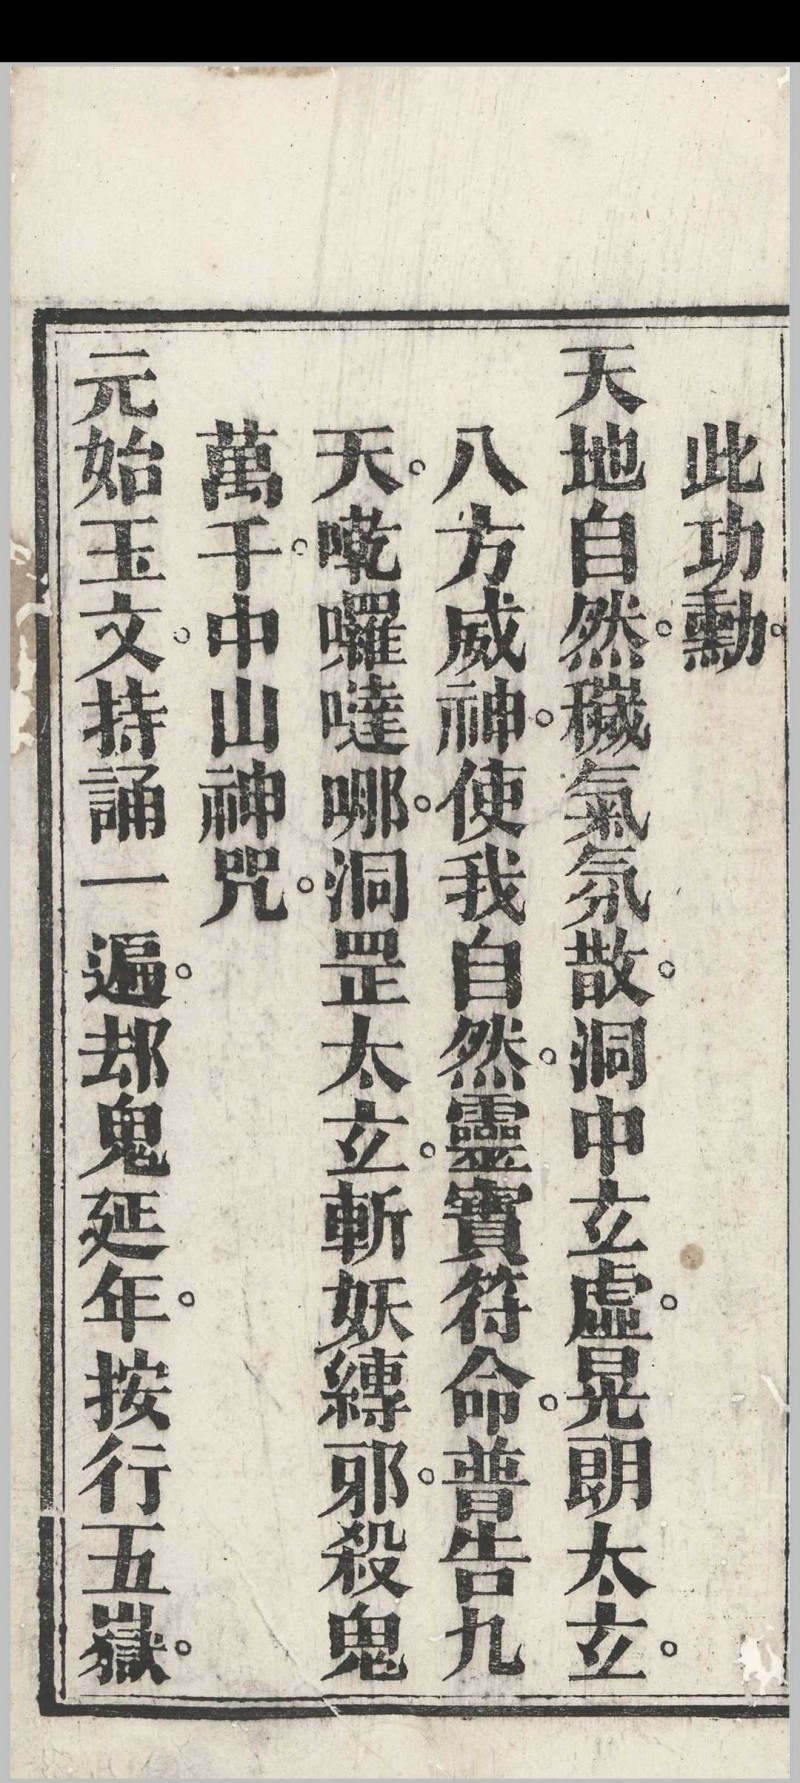 此功勳。
天地自然。穢氣氛散。洞中玄虛。晃朗太玄。
八方威神。使我自然。靈寶符命。普告九
天。嚪囉噠哪。洞罡太玄。斬妖縛邪。殺鬼
萬千。中山神咒。
元始玉文。持誦一遍。却鬼延年。按行五嶽。